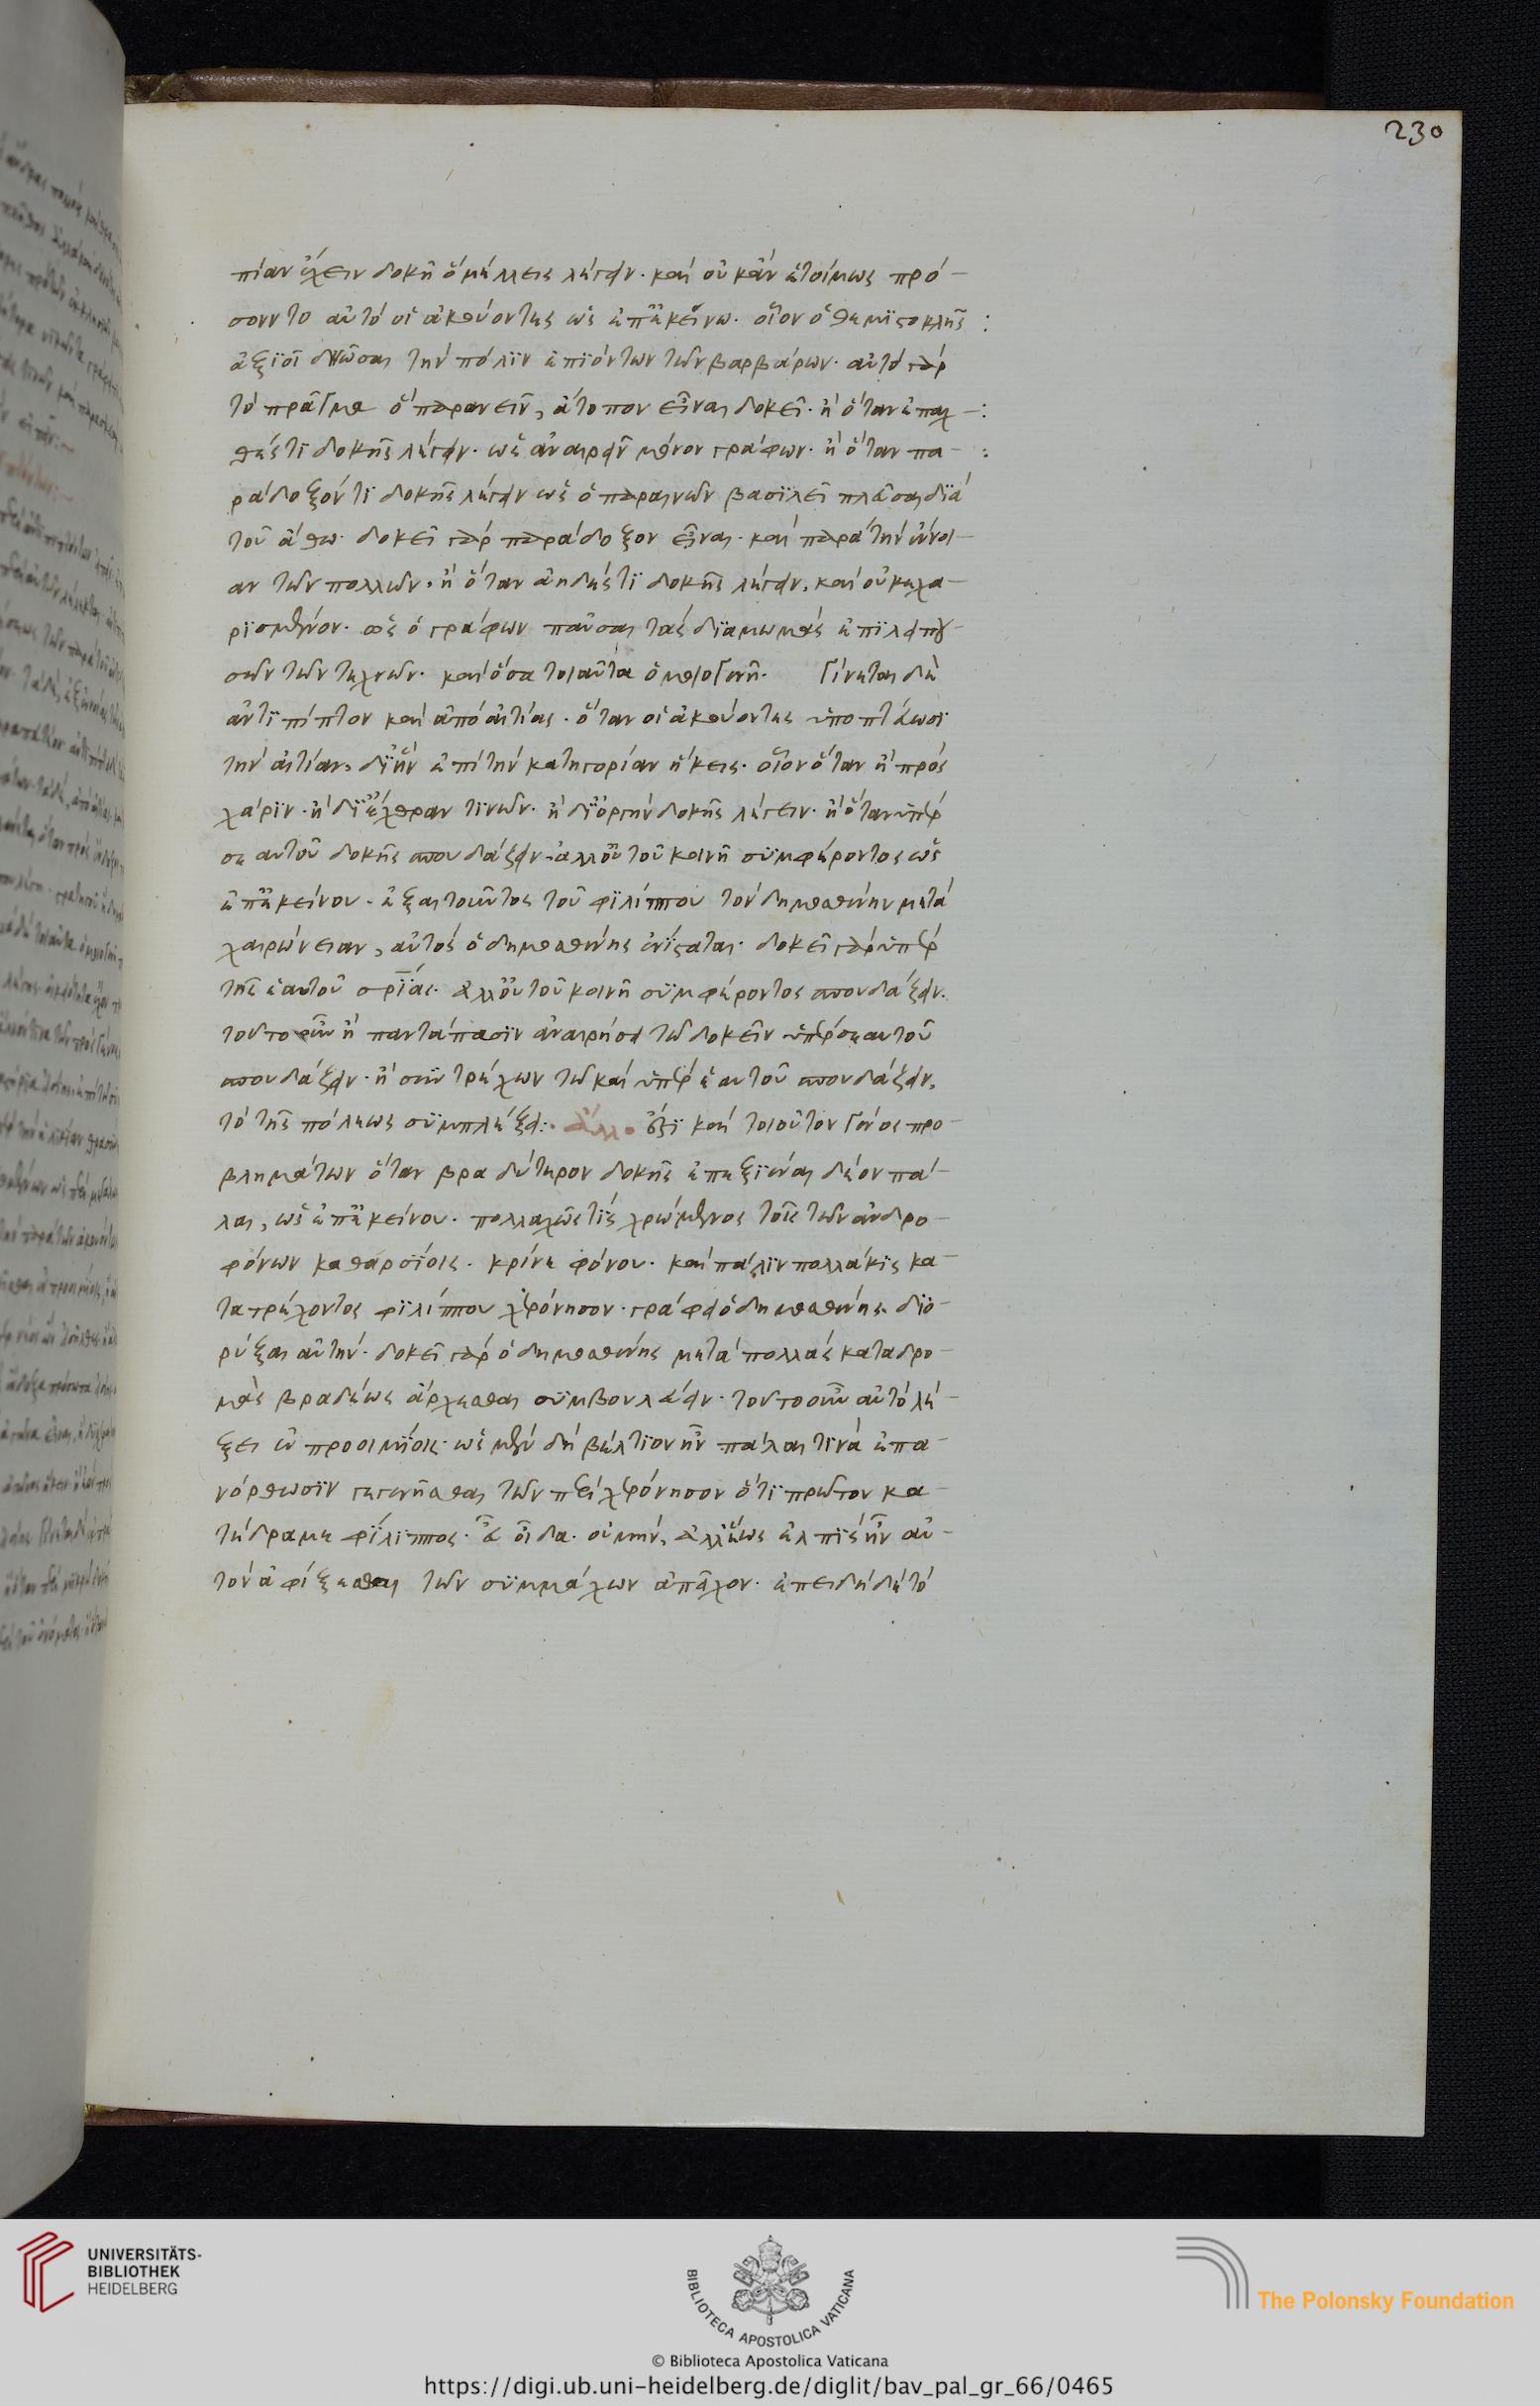 230
πίαν ἔχειν δοκῆ ὃ μέλλεις λέγειν. καὶ οὐκ ἂν ἑτοίμως πρό-
σοιντο αὐτὸ οἱ ἀκούοντες ὡς ἐπ' ἐκείνω. οἷον ὁ θεμιστοκλῆς
ἀξιοῖ δηῶσαι τὴν πόλιν ἐπιόντων τῶν βαρβάρων. αὐτὸ γὰρ
τὸ πρᾶγμα ὃ παραινεῖν, ἄτοπον εἶναι δοκεῖ. ἢ ὅταν ἐπαχ-
θές τι δοκῆς λέγειν. ὡς ἀναιρεῖν μόνον γράφων. ἢ ὅταν πα-
ράδοξόν τι δοκῆς λέγειν ὡς ὁ παραινῶν βασιλεῖ πλεῦσαι διὰ
τοῦ ἄθω. δοκεῖ γὰρ παράδοξον εἶναι. καὶ παρὰ τὴν ἔννοι-
αν τῶν πολλῶν. ἢ ὅταν ἀηδές τι δοκῆς λέγειν. καὶ οὐ κεχα-
ρισμένον. ὡς ὁ γράφων παῦσαι τὰς διανομὰς ἐπιλειπου-
σῶν τῶν τεχνῶν. καὶ ὅσα τοιαῦτα ὁμοιογενῆ. Γίνεται δὲ
ἀντιπίπτον καὶ ἀπὸ αἰτίας. ὅταν οἱ ἀκούοντες ὑποπτεύωσι
τὴν αἰτίαν, δι' ἣν ἐπὶ τὴν κατηγορίαν ἥκεις. οἷον ὅταν ἢ πρὸς
χάριν. ἢ δι' ἔχθραν τινῶν. ἢ δι' ὀργὴν δοκῆς λέγειν. ἢ ὅταν ὑπὲρ
σεαυτοῦ δοκῆς σπουδάζειν. ἀλλ' οὐ τοῦ κοινῆ συμφέροντος ὡς
ἐπ' ἐκείνου. ἐξαιτοῦντος τοῦ φιλίππου τὸν δημοσθένην μετὰ
χαιρώνειαν, αὐτὸς ὁ δημοσθένης ἐνίσταται. δοκεῖ γὰρ ὑπὲρ
τῆς ἑαυτοῦ σρίας. ἀλλ' οὐ τοῦ κοινῆ συμφέροντος σπουδάζειν.
τοῦτο οὖν ἢ παντάπασιν ἀναιρήσει τῶ δοκεῖν ὑπὲρ σεαυτοῦ
σπουδάζειν. ἢ συντρέχων τῶ καὶ ὑπὲρ ἑαυτοῦ σπουδάζειν,
τὸ τῆς πόλεως συμπλέξει: ἄλλο ἔστι καὶ τοιοῦτον γένος προ-
βλημάτων ὅταν βραδύτερον δοκῆς ἐπεξιέναι δέον πά-
λαι, ὡς ἐπ' ἐκείνου. πολλαχῶς τὶς χρώμενος τοῖς τῶν ἀνδρο-
φόνων καθαρσίοις. κρίνε φόνου. καὶ πάλιν πολλάκις κα-
τατρέχοντος φιλίππου χερόνησον. γράφει ὁ δημοσθένης διο-
ρύξαι αὐτήν. δοκεῖ γὰρ ὁ δημοσθένης μετὰ πολλὰς καταδρο-
μὰς βραδέως ἄρχεσθαι συμβουλεύειν. τοῦτο οὖν αὐτὸ λέ-
ξει ἐν προοιμίοις. ὡς μὲν δὴ βέλτιον ἦν πάλαι τινὰ ἐπα-
νόρθωσιν γεγενῆσθαι τῶν περὶ χερόνησον ὅτι πρῶτον κα-
τέδραμε φίλιππος. εὖ οἶδα. οὐ μὴν, ἀλλ' ἕως ἐλπὶς ἦν αὐ-
τὸν ἀφίξεσθαι τῶν συμμάχων ἀπεῖχον. ἐπειδὴ δὲ τὸ
UNIVERSITÄTS-
BIBLIOTHEK
HEIDELBERG
BIBLIOTECA APOSTOLICA VATICANA
The Polonsky Foundation
© Biblioteca Apostolica Vaticana
https://digi.ub.uni-heidelberg.de/diglit/bav_pal_gr_66/0465